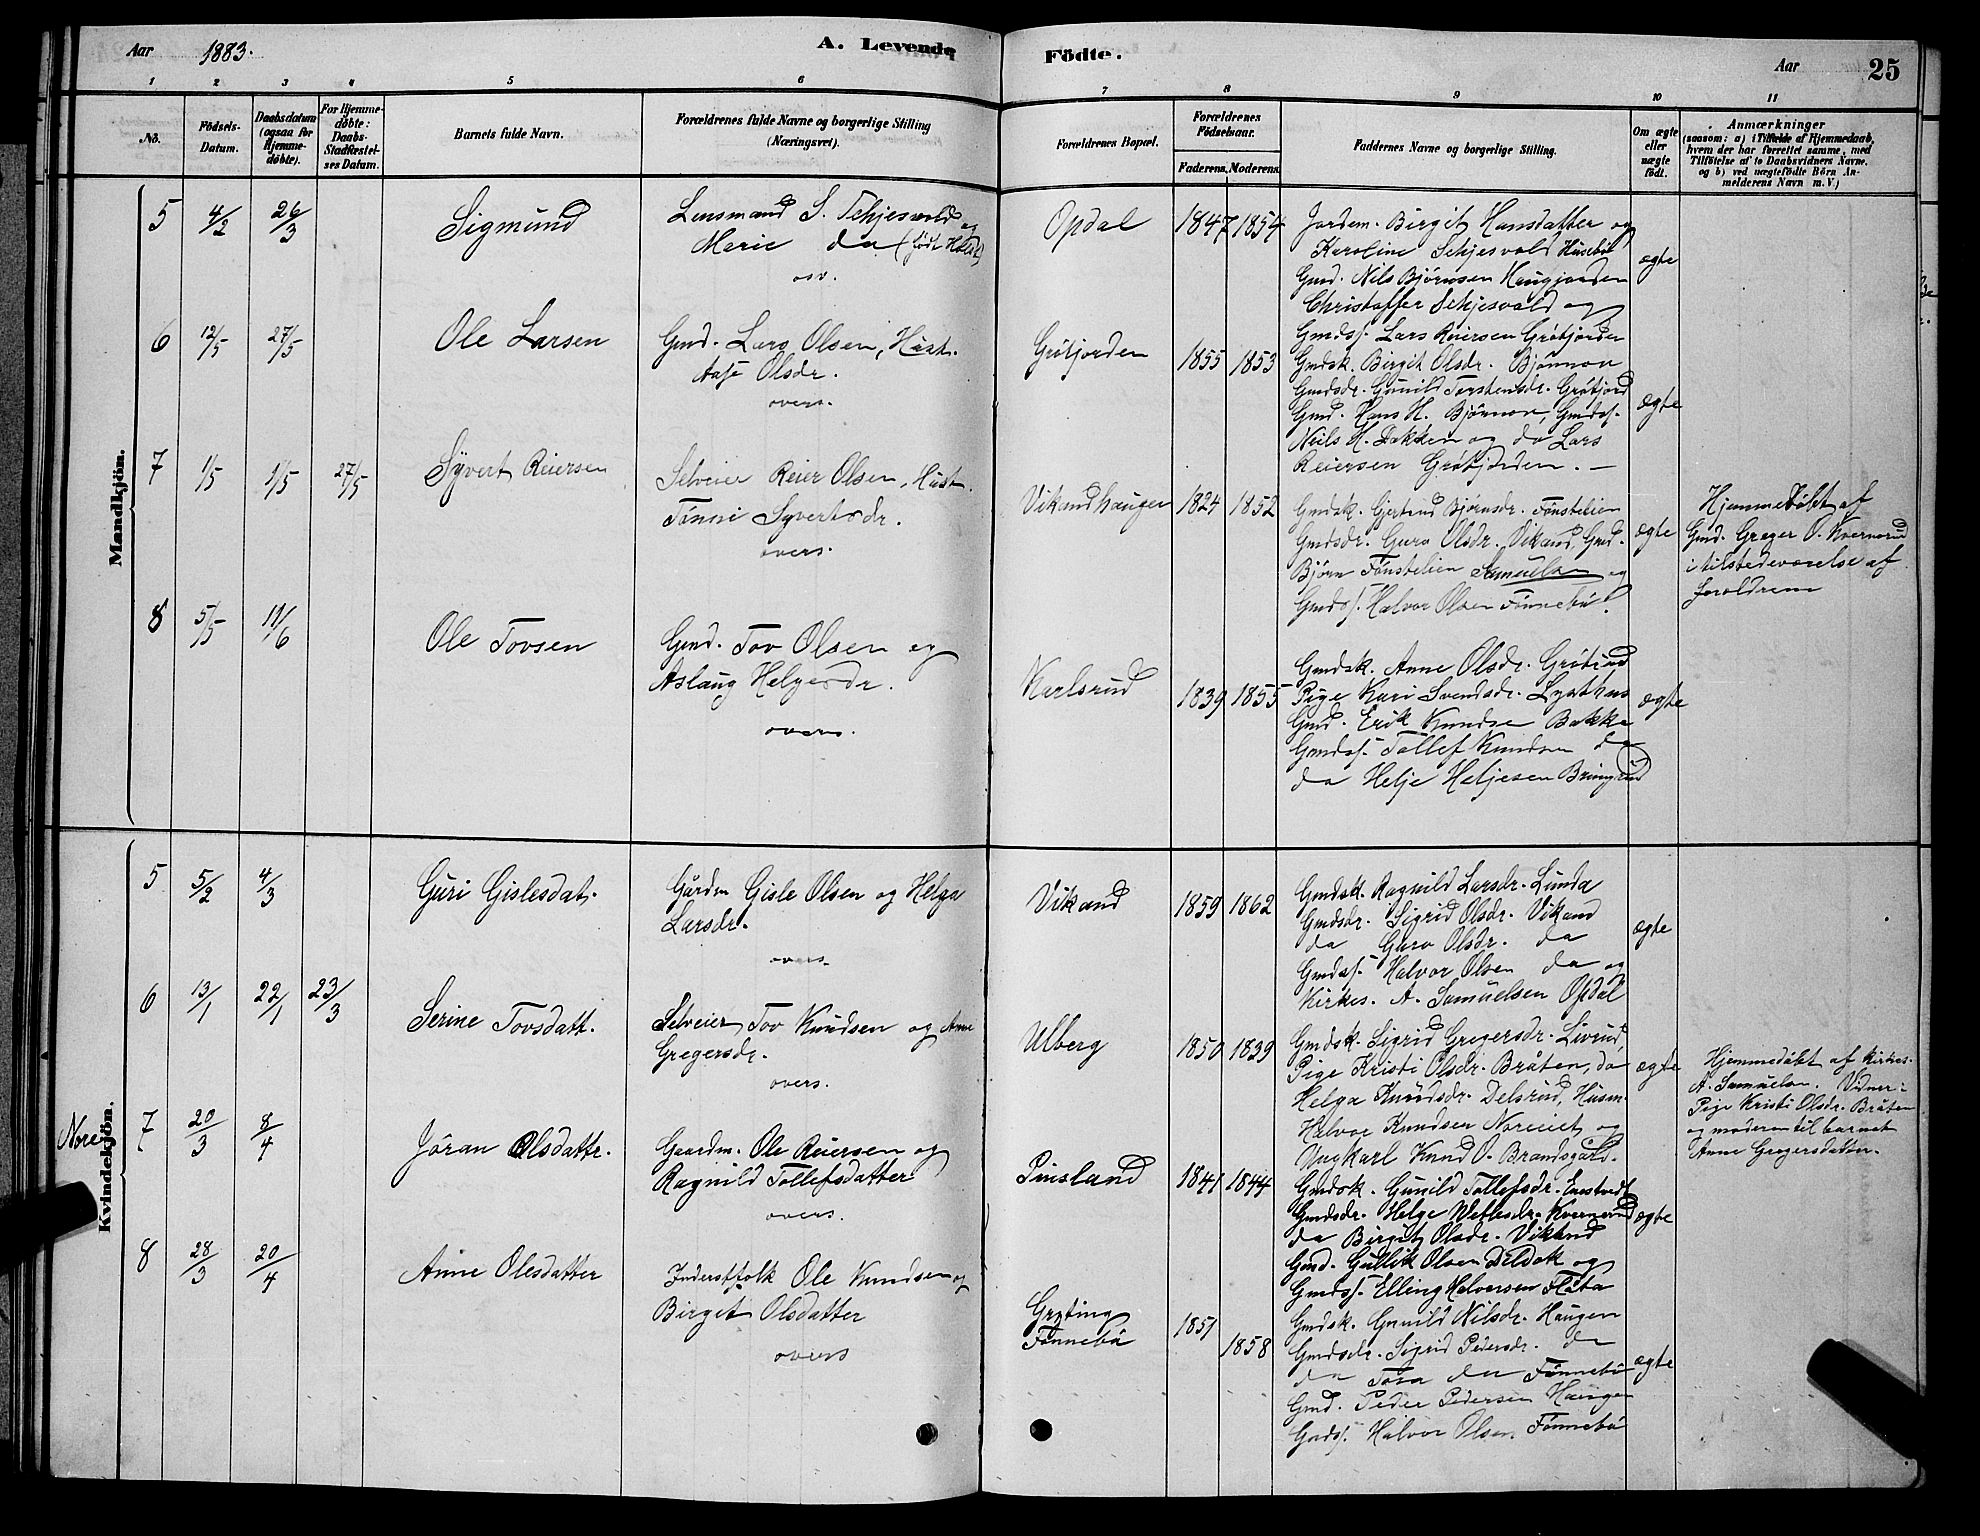 Aar 1883.
A. Levende Födte.
Aar 25
1 2 3 4 5 6 7 8 9 10 11
No.
Födsels-Datum.
Daabsdatum (ogsaa for Hjemme-døbte).
For Hjemme-døbte: Daabs-Stadfæstel-ses Datum.
Barnets fulde Navn.
Forældrenes fulde Navne og borgerlige Stilling (Næringsvei).
Forældrenes Bopæl.
Forældrenes Födselsaar.
Faderens. Moderens.
Faddernes Navne og borgerlige Stilling.
Om ægte eller uægte födt.
Anmærkninger
(saasom: a) i Tilfælde af Hjemmedaab, hvem der har forrettet samme, med Tilföielse af to Daabsvidners Navne, og b) ved uægtefödte Börn Anmelderens Navn m. V.)
Mandkjön.
5 4/2 26/3
Sigmund
Lensmand S. Tehjesvold og
Marie do (født Holst)
osv.
Opdal
1847 1854
Jordem. Birgit Hansdatter og
Karoline Tehjesvold Husebø
Gmd. Nils Bjørnsen Haugjorden
Christoffer Tehjesvold og
ægte
6 12/5 27/5
Ole Larsen
Gmd. Lars Olsen, Hust.
Aase Olsdr.
overs.
Grøtjorden
1855 1853
Gmdss. Lars Reiersen Grøtjorden
Gmdsk. Birgit Olsdr. Bjønnon
Gmdsdr. Gunild Torstensdr. Grøtjord
Gmd. Hans H. Bjønnon, Gmdss.
Niels H. Bakken og do Lars
Reiersen Grøtjorden. —
ægte
7 1/5 1/5 27/5
Syvert Reiersen
Selveier Reier Olsen, Hust.
Tønni Syvertsdr.
overs.
Vikandhaugen
1824 1852
Gmdsk. Gjertrud Bjørnsdr. Fønstelien
Gmdsdr. Guro Olsdr. Vikand, Gmd.
Bjørn Fønstelien Samuelsen og
Gmdss. Halvor Olsen Fønnebø.
ægte
Hjemmedøbt af
Gmd. Greger O. Kvernerud
i tilstedeværelse af
foreldrene
8 5/5 11/6
Ole Tovsen
Gmd. Tov Olsen og
Aslaug Helgesdr.
overs.
Karlsrud
1839 1855
Gmdsk. Anne Olsdr. Grøtjord
Pige Kari Svendsdr. Lysthus
Gmd. Erik Knudsen Bakke
Gmdss. Tollef Knudsen do
do Helje Heljesen Bringsrud
ægte
Kvindekjön.
5 5/2 4/3
Guri Gislesdat.
Gårdm. Gisle Olsen og Helga
Larsdr.
overs.
Vikand
1859 1862
Gmdsk. Ragnild Larsdr. Lunda
Gmdsdr. Sigrid Olsdr. Vikand
do Guro Olsdr. do
Gmdss. Halvor Olsen do og
Kirkes. A. Samuelsen Opdal
ægte
6 13/1 22/1 23/3
Serine Tovsdatt.
Selveier Tov Knudsen og Anne
Gregersdr.
overs.
Ulberg
1850 1839
Gmdsk. Sigrid Gregersdr. Liverud,
Pige Kristi Olsdr. Bråten, do
Helga Knudsdr. Delsrud, Husm.
Halvor Knudsen Noreiet og
Ungkarl Knud O. Brandsgård.
ægte
Hjemmedøbt af Kirkes.
A. Samuelsen. Vidner:
Pige Kristi Olsdr. Bråten
og moderen til barnet
Anne Gregersdatter.
Nore
7 20/3 8/4
Jøran Olsdattr.
Gaardm. Ole Reiersen og
Ragnild Tollefsdatter
overs.
Juvsland
1841 1844
Gmdsk. Gunild Tollefsdr. Enestvedt
Gmdsdr. Helge Nilsesdr. Kvernerud
do Birgit Olsdr. Vikand
Gmd. Gullik Olsen Dildok og
Gmdss. Elling Halvorsen Flåta
ægte
8 28/3 20/4
Anne Olesdatter
Inderstfolk Ole Knudsen og
Birget Olsdatter
overs
Gryting
Fønnebø
1851 1858
Gmdsk. Gunild Nilsdr. Haugen
Gmdsdr. Sigrid Pedersdr. do
do Tora do Fønnebø
Gmd. Peder Pedersen Haugen
Gmdss. Halvor Olsen Fønnebø
ægte